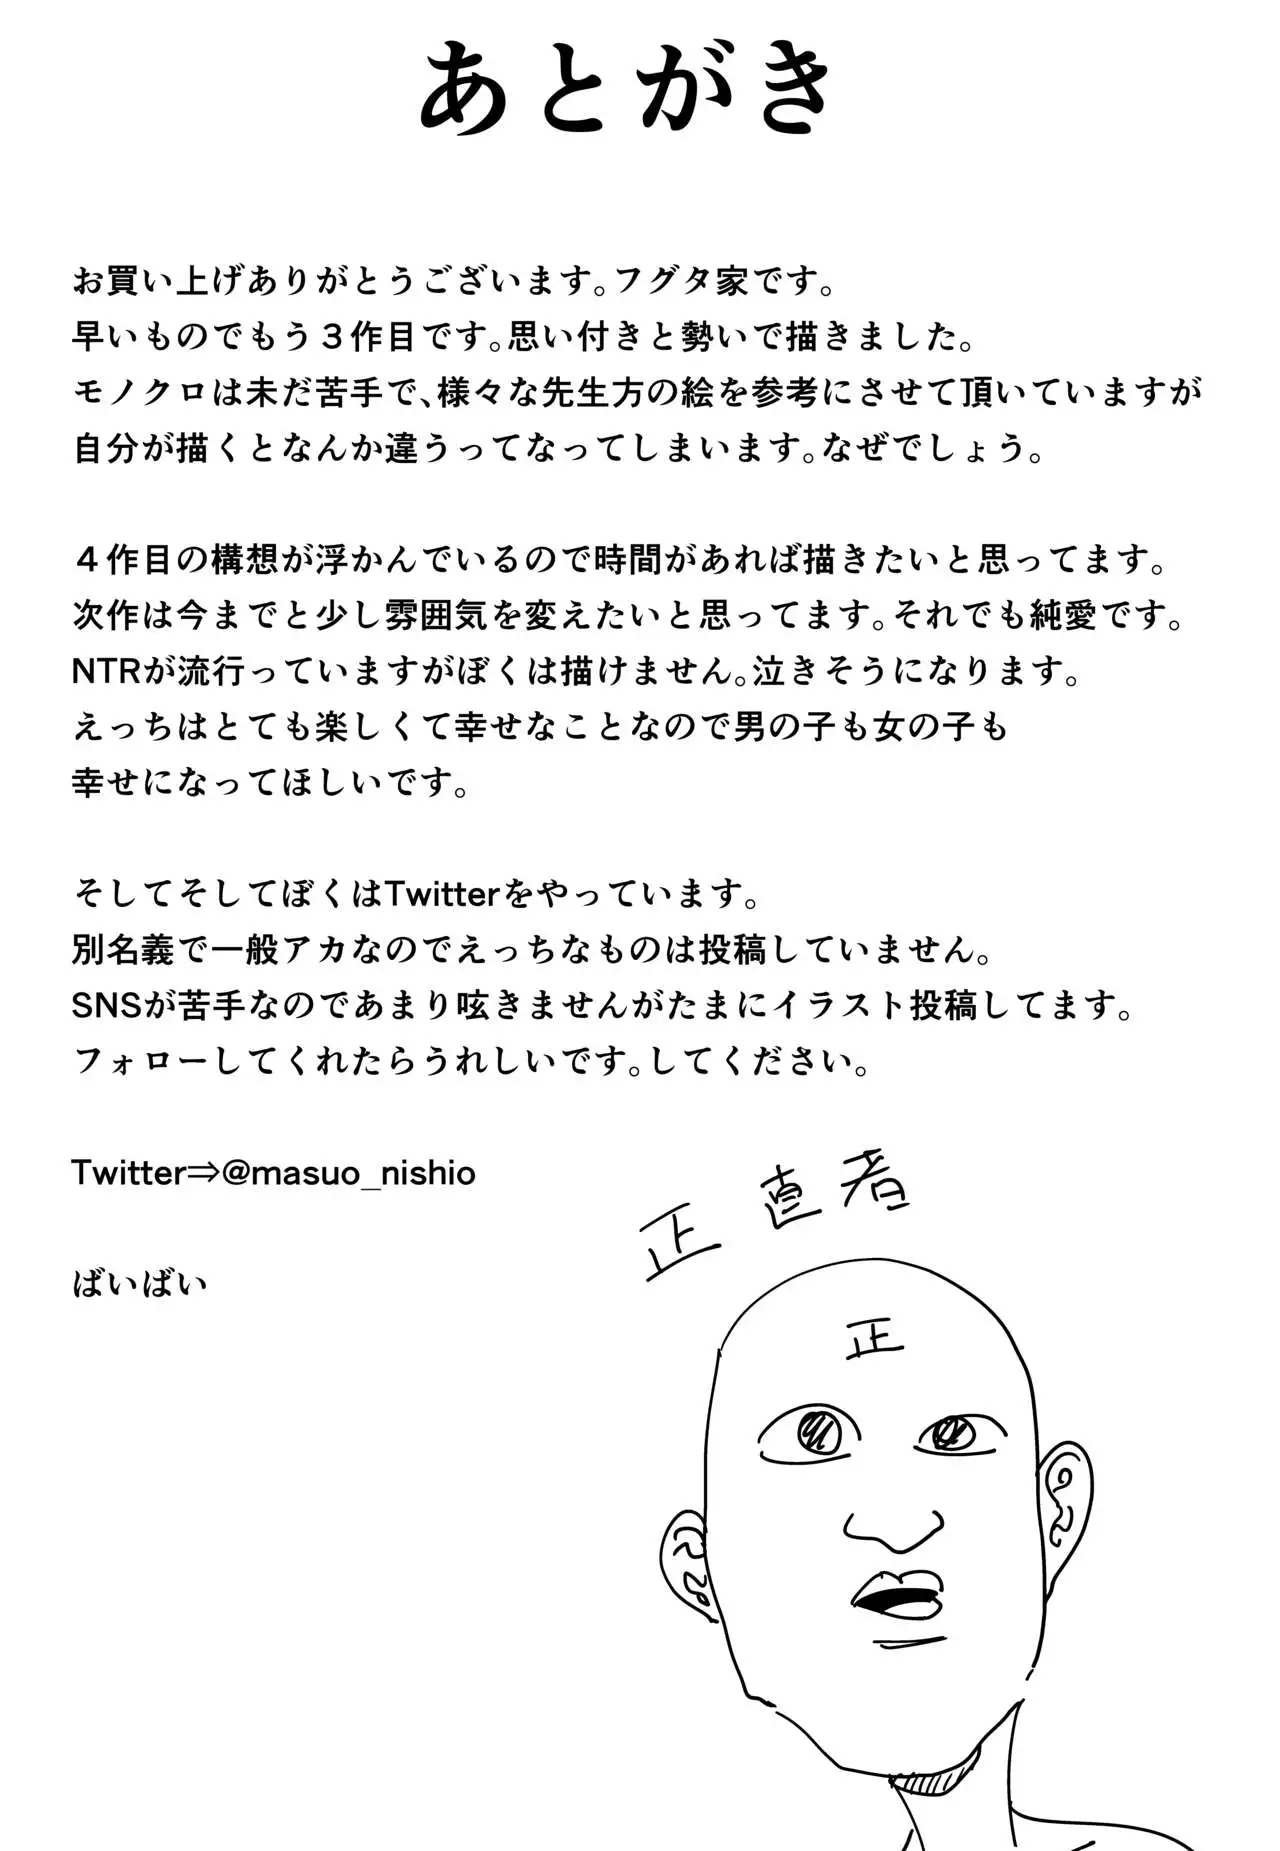 あとがき
お買い上げありがとうございます。フグタ家です。
早いものでもう３作目です。思い付きと勢いで描きました。
モノクロは未だ苦手で、様々な先生方の絵を参考にさせて頂いていますが
自分が描くとなんか違うってなってしまいます。なぜでしょう。
４作目の構想が浮かんでいるので時間があれば描きたいと思ってます。
次作は今までと少し雰囲気を変えたいと思ってます。それでも純愛です。
NTRが流行っていますがぼくは描けません。泣きそうになります。
えっちはとても楽しくて幸せなことなので男の子も女の子も
幸せになってほしいです。
そしてそしてぼくはTwitterをやっています。
別名義で一般アカなのでえっちなものは投稿していません。
SNSが苦手なのであまり呟きませんがたまにイラスト投稿してます。
フォローしてくれたらうれしいです。してください。
Twitter⇒@masuo_nishio
正直者
ばいばい
正